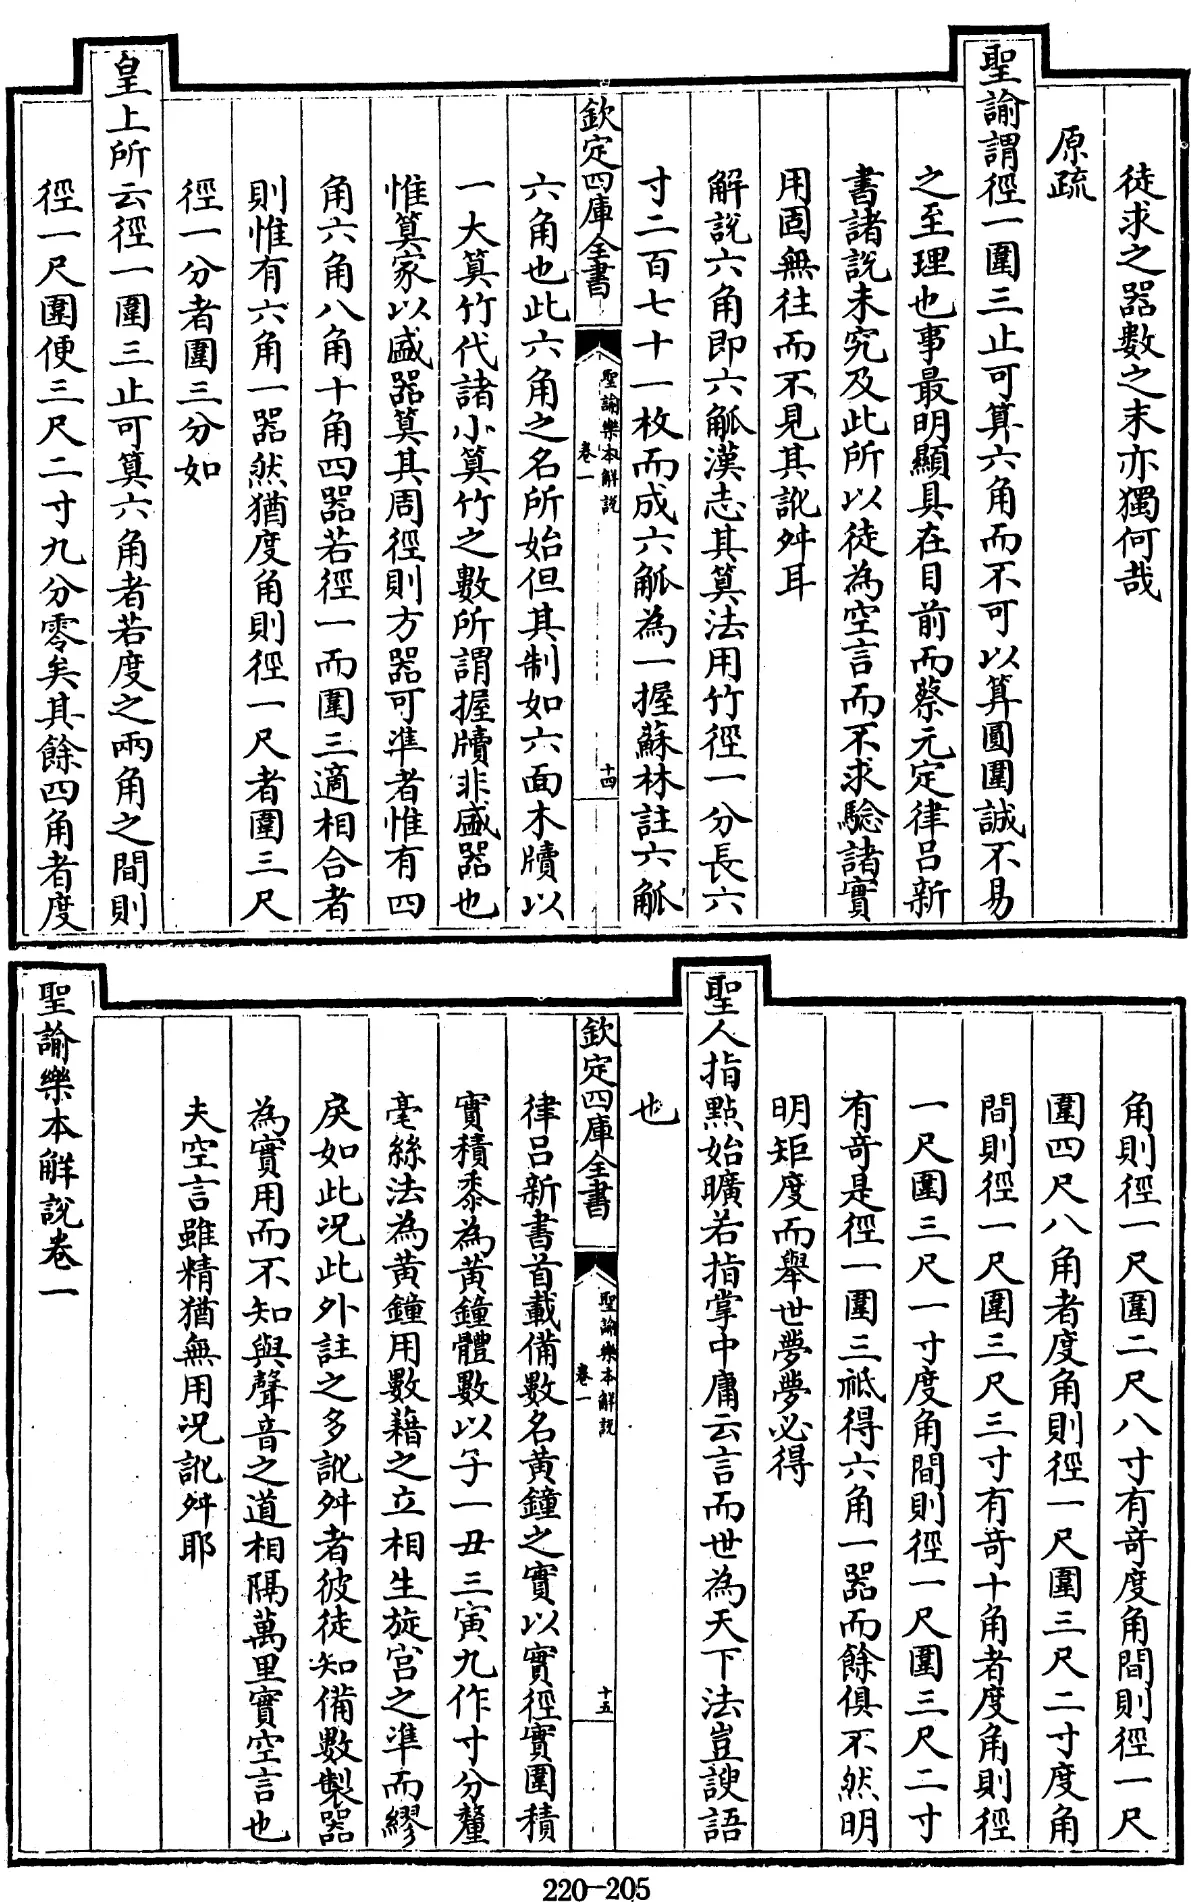 徒求之器數之末亦獨何哉
原疏
聖諭謂徑一圍三止可算六角而不可以算圓圍誠不易
之至理也事最明顯具在目前而蔡元定律呂新
書諸說未究及此所以徒為空言而不求驗諸實
用固無往而不見其訛舛耳
解說六角即六觚漢志其算法用竹徑一分長六
寸二百七十一枚而成六觚為一握蘇林註六觚
欽定四庫全書
聖諭樂本解說
卷一
十四
六角也此六角之名所始但其制如六面木牘以
一大算竹代諸小算竹之數所謂握牘非盛器也
惟算家以盛器算其周徑則方器可準者惟有四
角六角八角十角四器若徑一而圍三適相合者
則惟有六角一器然猶度角則徑一尺者圍三尺
徑一分者圍三分如
皇上所云徑一圍三止可算六角者若度之兩角之間則
徑一尺圍便三尺二寸九分零矣其餘四角者度
角則徑一尺圍二尺八寸有奇度角間則徑一尺
圍四尺八角者度角則徑一尺圍三尺二寸度角
間則徑一尺圍三尺三寸有奇十角者度角則徑
一尺圍三尺一寸度角間則徑一尺圍三尺二寸
有奇是徑一圍三祗得六角一器而餘俱不然明
明矩度而舉世夢夢必得
聖人指點始曠若指掌中庸云言而世為天下法豈謏語
也
欽定四庫全書
聖諭樂本解說
卷一
十五
律呂新書首載備數名黃鐘之實以實徑實圍積
實積黍為黃鐘體數以子一丑三寅九作寸分釐
毫絲法為黃鐘用數藉之立相生旋宮之準而繆
戾如此況此外註之多訛舛者彼徒知備數製器
為實用而不知與聲音之道相隔萬里實空言也
夫空言雖精猶無用況訛舛耶
聖諭樂本解說卷一
220-205